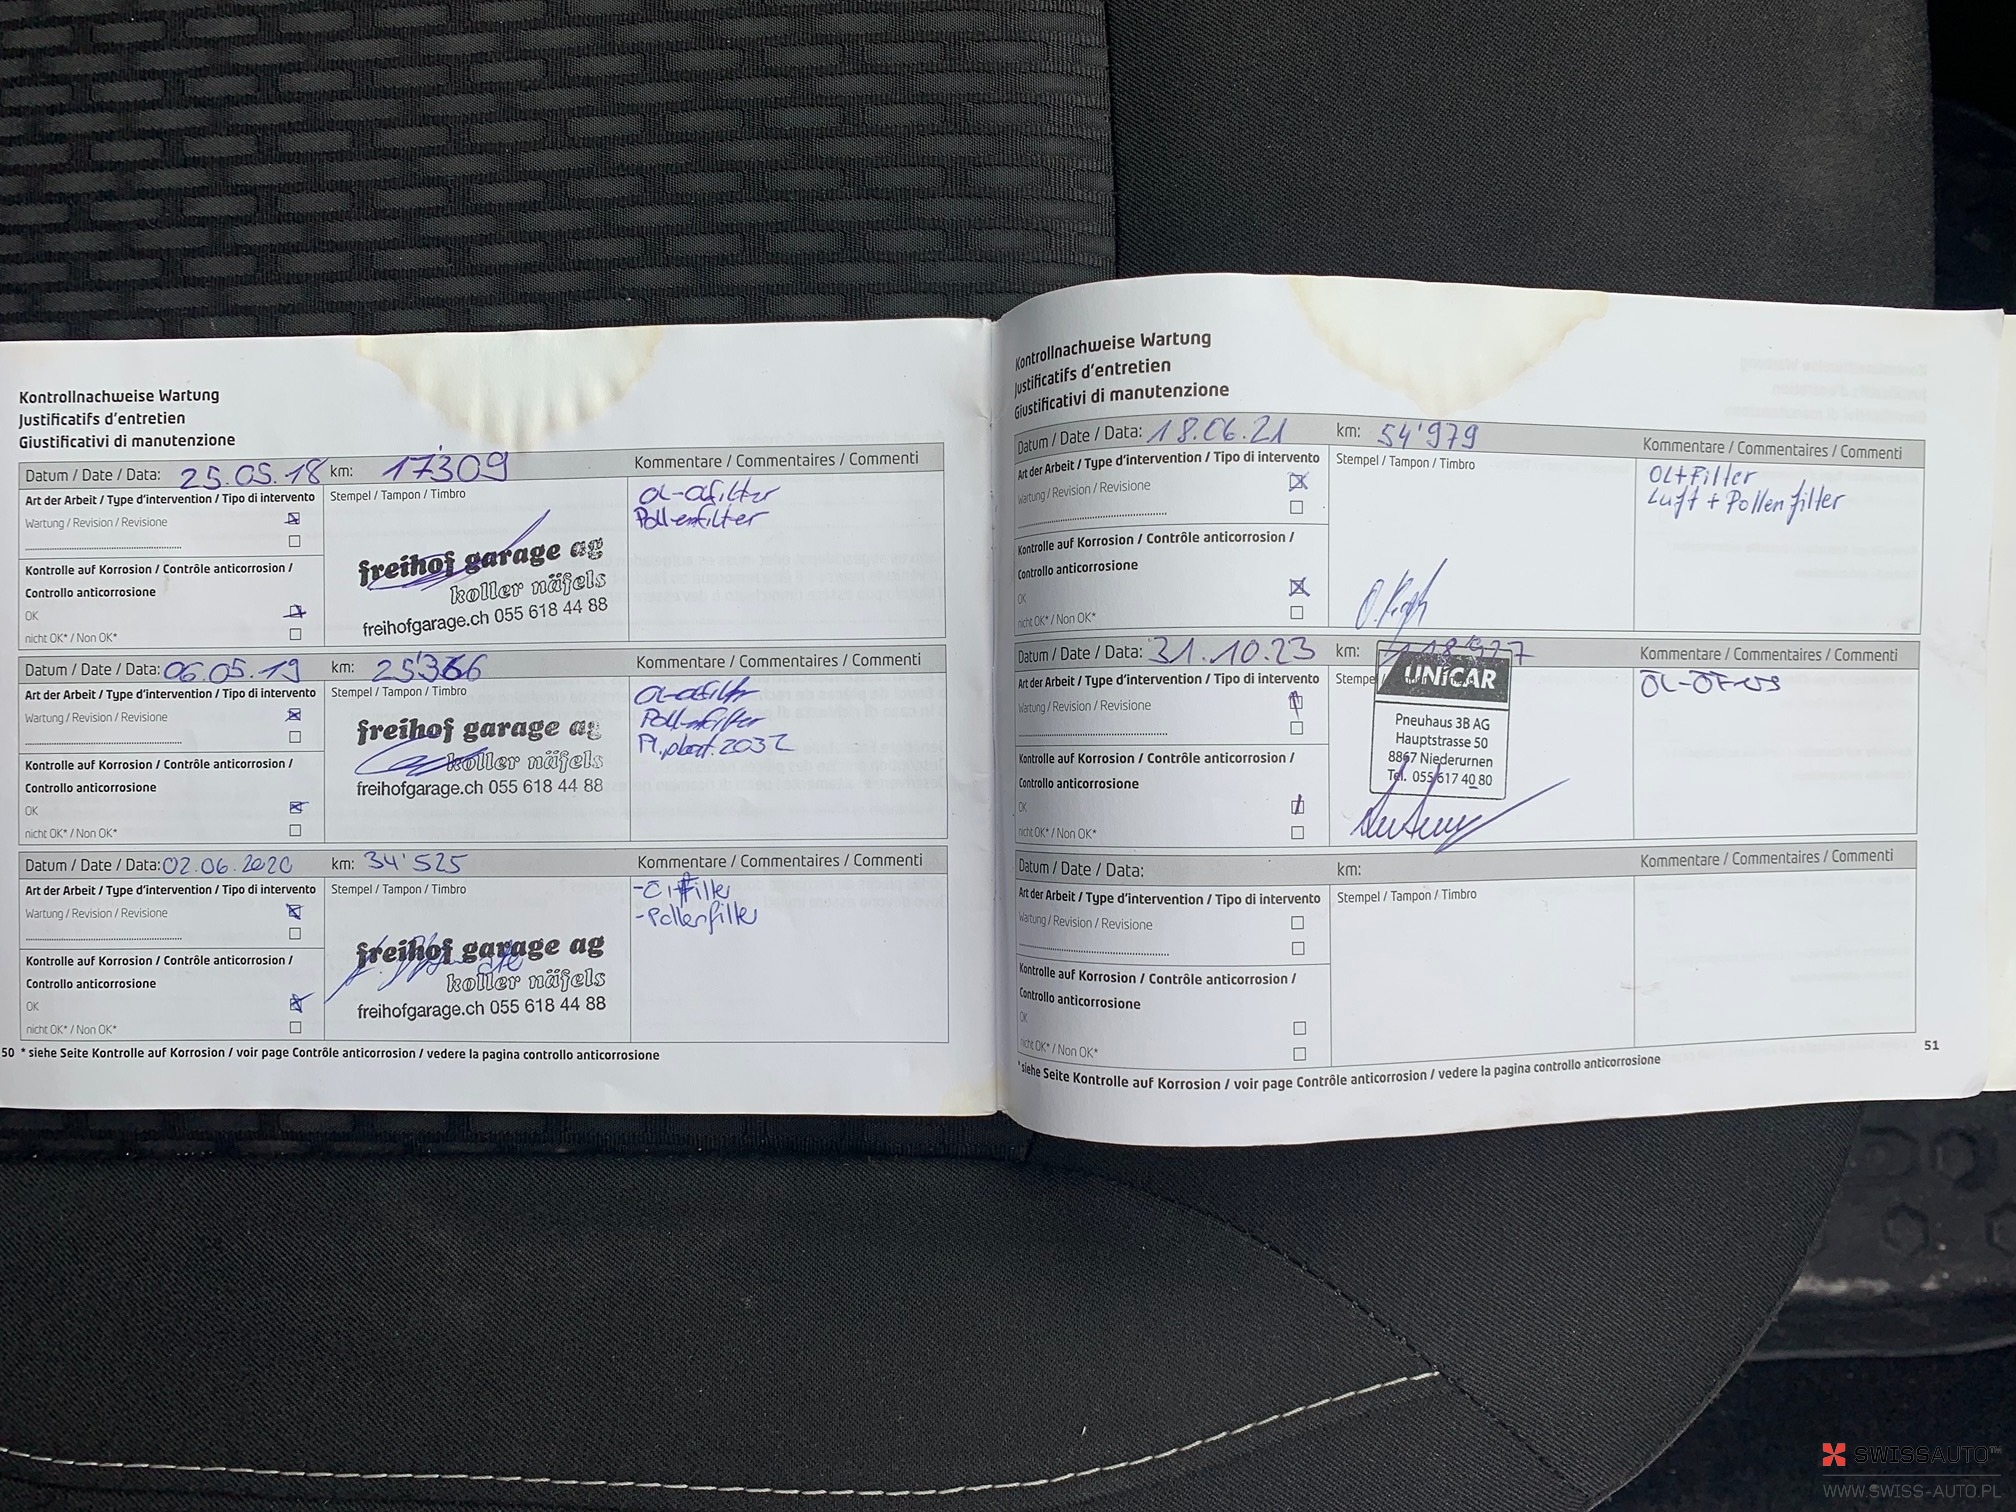 Kontrollnachweise Wartung
Justificatifs d'entretien
Giustificativi di manutenzione
Datum / Date / Data: 25.05.18 km: 17'309 Kommentare / Commentaires / Commenti
Art der Arbeit / Type d'intervention / Tipo di intervento Stempel / Tampon / Timbro
Wartung / Revision / Revisione
Pollenfilter
Kontrolle auf Korrosion / Contrôle anticorrosion /
Controllo anticorrosione
OK
nicht OK* / Non OK*
freihof garage ag
koller näfels
freihofgarage.ch 055 618 44 88
Datum / Date / Data: 06.05.19 km: Kommentare / Commentaires / Commenti
Art der Arbeit / Type d'intervention / Tipo di intervento Stempel / Tampon / Timbro
Wartung / Revision / Revisione
Pollenfilter
2032
Kontrolle auf Korrosion / Contrôle anticorrosion /
Controllo anticorrosione
OK
nicht OK* / Non OK*
freihof garage ag
koller näfels
freihofgarage.ch 055 618 44 88
Datum / Date / Data: 02.06.2020 km: 34'525 Kommentare / Commentaires / Commenti
Art der Arbeit / Type d'intervention / Tipo di intervento Stempel / Tampon / Timbro
Wartung / Revision / Revisione
-Pollenfilter
Kontrolle auf Korrosion / Contrôle anticorrosion /
Controllo anticorrosione
OK
nicht OK* / Non OK*
freihof garage ag
koller näfels
freihofgarage.ch 055 618 44 88
50 * siehe Seite Kontrolle auf Korrosion / voir page Contrôle anticorrosion / vedere la pagina controllo anticorrosione
Kontrollnachweise Wartung
Justificatifs d'entretien
Giustificativi di manutenzione
Datum / Date / Data: 18.06.21 km: 54'979 Kommentare / Commentaires / Commenti
Art der Arbeit / Type d'intervention / Tipo di intervento Stempel / Tampon / Timbro
Wartung / Revision / Revisione
ÖL+Filter
Luft + Pollenfilter
Kontrolle auf Korrosion / Contrôle anticorrosion /
Controllo anticorrosione
OK
nicht OK* / Non OK*
Datum / Date / Data: 31.10.23 km: Kommentare / Commentaires / Commenti
Art der Arbeit / Type d'intervention / Tipo di intervento
Wartung / Revision / Revisione
Kontrolle auf Korrosion / Contrôle anticorrosion /
Controllo anticorrosione
OK
nicht OK* / Non OK*
UNICAR
Pneuhaus 3B AG
Hauptstrasse 50
8867 Niederurnen
Tel. 055 617 40 80
Datum / Date / Data: km: Kommentare / Commentaires / Commenti
Art der Arbeit / Type d'intervention / Tipo di intervento Stempel / Tampon / Timbro
Wartung / Revision / Revisione
Kontrolle auf Korrosion / Contrôle anticorrosion /
Controllo anticorrosione
OK
nicht OK* / Non OK*
51
* siehe Seite Kontrolle auf Korrosion / voir page Contrôle anticorrosion / vedere la pagina controllo anticorrosione
SWISSAUTO™
WWW.SWISS-AUTO.PL